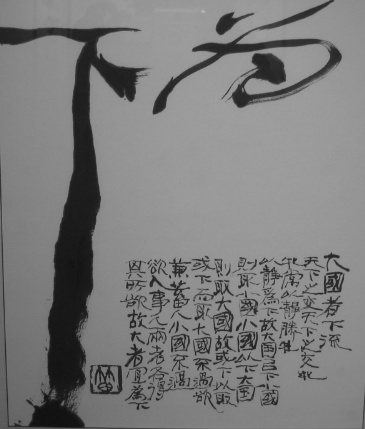 為下
大國者下流
天下之交天下之交牝
牝常以靜勝牡
以靜爲下故大國以下小國
則取小國小國以下大國
則取大國故或下以取
或下而取大國不過欲
兼畜人小國不過
欲入事人夫兩者各得
其所欲故大者宜爲下